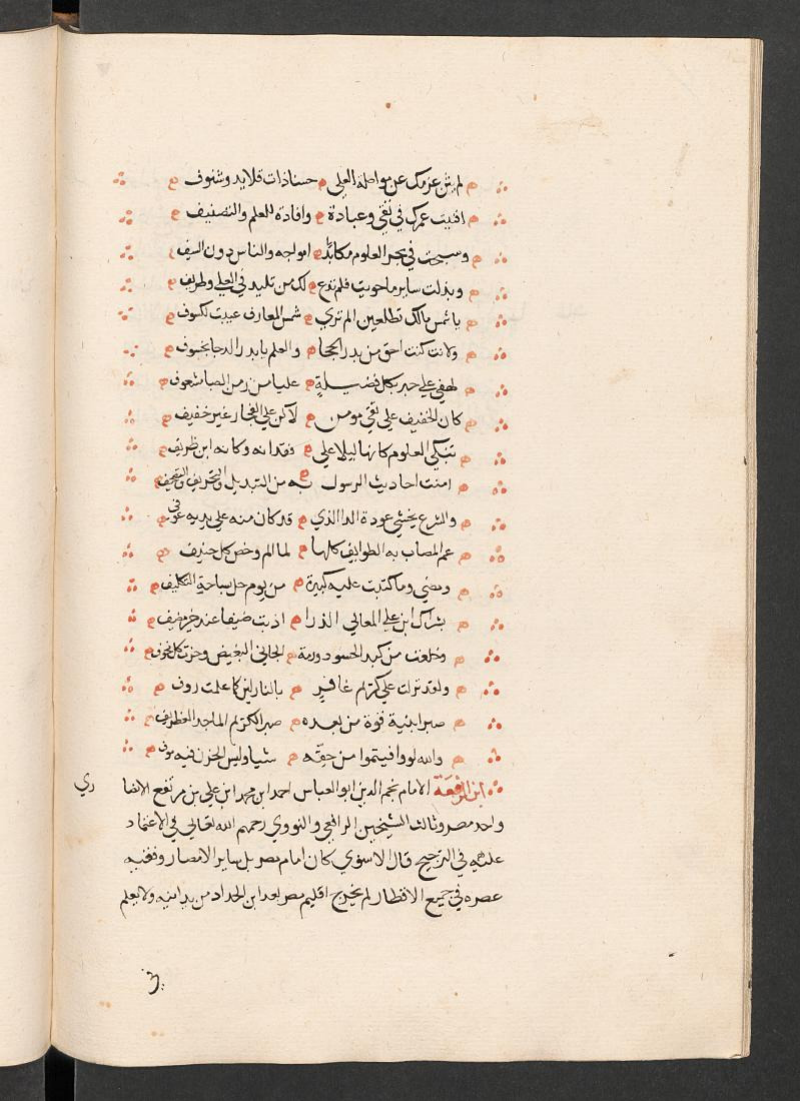 لم تثن عزمك عن مواصلة العلى حسنا ذات قلايد وشنوف
افنيت عمرك في تقى وعبادة وافادة للعلم والتصنيف
وسبحت في بحر العلوم مكابدا امواجه والناس دون السيف
وبذلت ساير ما حويت فلم تدع لك من تليد في العلي وطريف
يا شمس مالك تطلعين الم تري شمس المعارف غيبت بكسوف
ولانت كنت احق من بدر الحجا والعلم يا بدر الدجا بخسوف
لهفي على حبر بكل فضيلة عليا من زمن الصبا مشغوف
كان الخفيف على تقي مومن لاكن على الفجار غير خفيف
تبكي العلوم كانها ليلا على فقدانه وكانه ابن ظريف
امنت احاديث الرسول به من التبديل والتحريف والتصحيف
والشرع يخشى عودة الدا الذي قد كان منه على يديه عوفي
عم المصاب به الطوايف كلها لما الم وخص كل حنيف
ومضى وما كتبت عليه كبيرة من يوم حل بساحة التكليف
بشراك ابن علي المعالي الذرا اذ بت ضيفا عند خير مضيف
وخلصت من كيد الحسود ورمة الجاني البغيض وحزت كل مخوف
ولقد نزلت على كريم غافر بالنازلين كما علمت روف
صبرا بنية قوة من بعده صبر الكريم الماجد الغطريف
والله لو وافيتموا من حقه شيا وليس الحزن فيه موف
ابن الرفعة الامام نجم الدين ابو العباس احمد ابن محمد ابن علي بن مرتفع الانصا ري
واحد مصر وثالث الشيخين الرافعي والنووي رحمهم الله تعالى في الاعتماد
عليه في الترجيح قال الاسنوي كان امام مصر بل ساير الامصار وفقيه
عصره في جميع الاقطار لم يخرج اقليم مصر بعد ابن الحداد من يدانيه ولا يعلم